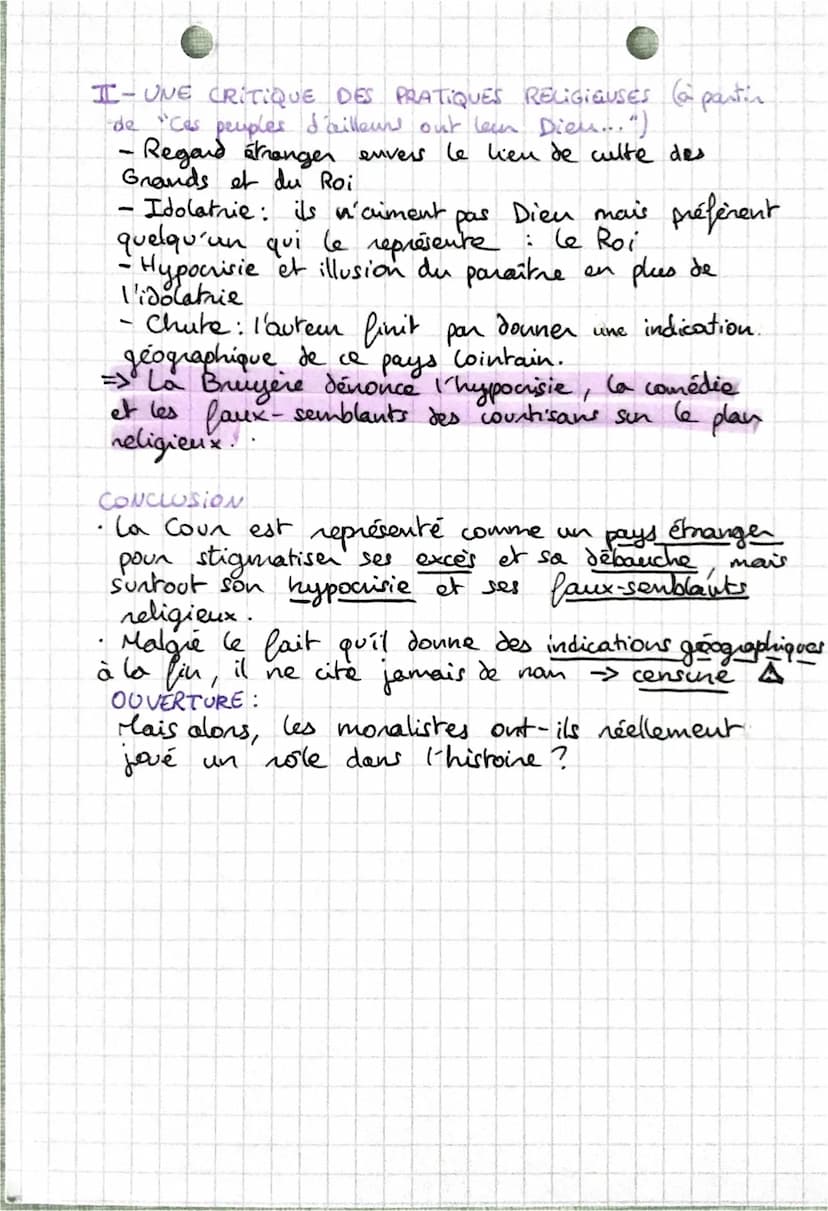 II - UNE CRITIQUE DES PRATIQUES RELIGIEUSES (à partir
de "Ces peuples d'ailleurs ont leur Dieu...")
- Regard étranger envers le lieu de culte des
Grands et du Roi
- Idolatrie : ils n'aiment pas Dieu mais préfèrent
quelqu'un qui le représente : le Roi
- Hypocrisie et illusion du paraître en plus de
l'idolatrie
- Chute : l'auteur finit par donner une indication
géographique de ce pays lointain.
=> La Bruyère dénonce l'hypocrisie, la comédie
et les faux-semblants des courtisans sur le plan
religieux.
CONCLUSION
· La Cour est représenté comme un pays étranger
pour stigmatiser ses excès et sa débauche, mais
surtout son hypocrisie et ses faux-semblants
religieux.
· Malgré le fait qu'il donne des indications géographiques
à la fin, il ne cite jamais de nom -> censure ⚠
OUVERTURE :
Mais alors, les moralistes ont-ils réellement
joué un rôle dans l'histoire ?